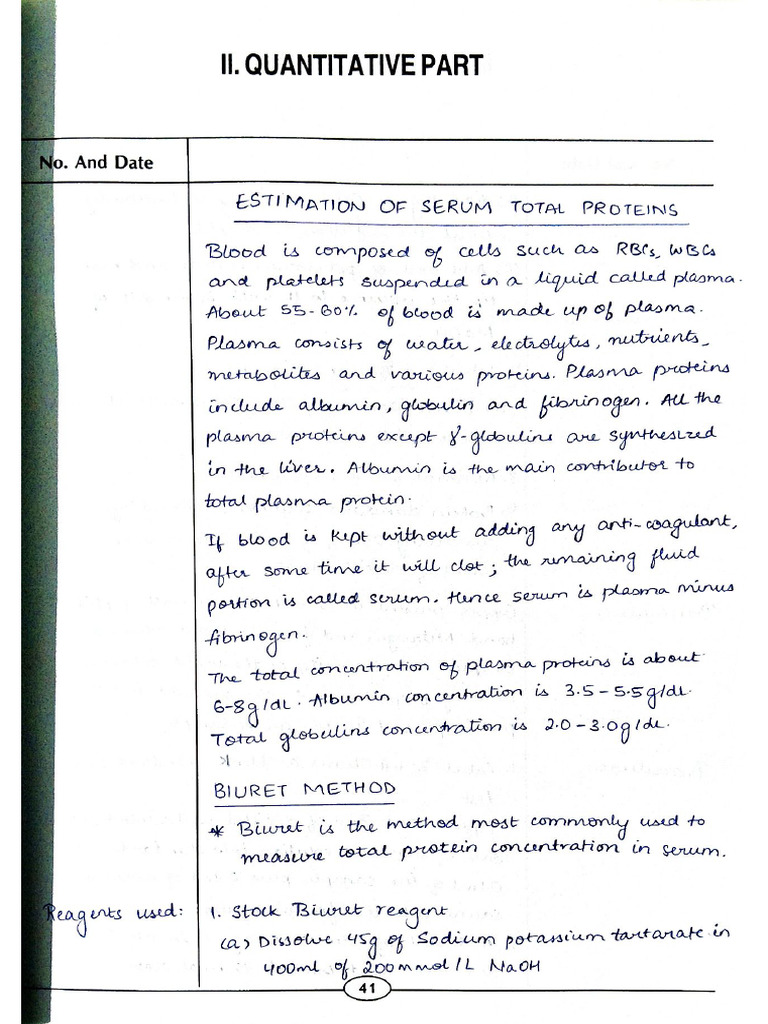 II. QUANTITATIVE PART
No. And Date
ESTIMATION OF SERUM TOTAL PROTEINS
Blood is composed of cells such as RBCs, WBCs
and platelets suspended in a liquid called plasma.
About 55-60% of blood is made up of plasma.
Plasma consists of water, electrolytes, nutrients,
metabolites and various proteins. Plasma proteins
include albumin, globulin and fibrinogen. All the
plasma proteins except γ-globulins are synthesized
in the liver. Albumin is the main contributor to
total plasma protein.
If blood is kept without adding any anti-coagulant,
after some time it will clot; the remaining fluid
portion is called serum. Hence serum is plasma minus
fibrinogen.
The total concentration of plasma proteins is about
6-8g/dL. Albumin concentration is 3.5-5.5g/dL.
Total globulins concentration is 2.0-3.0g/dL.
BIURET METHOD
* Biuret is the method most commonly used to
measure total protein concentration in serum.
Reagents used: 1. Stock Biuret reagent
(a) Dissolve 45g of Sodium potassium tartarate in
400ml of 200mmol/L NaOH
41